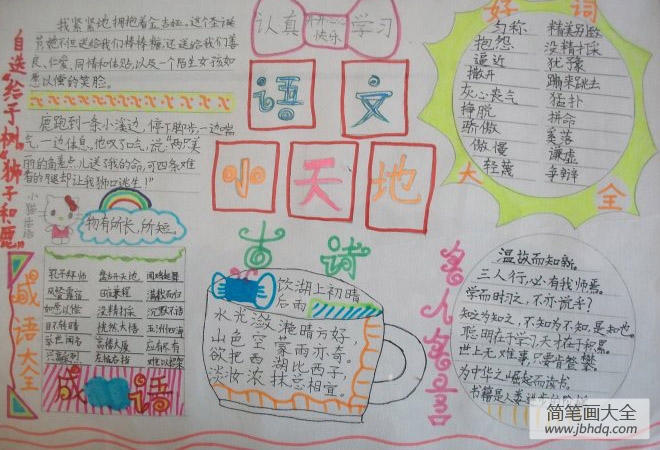 自选"格子树""狮子和鹿"
我紧紧地拥抱着金吉娅。这个圣诞
节她不但送给我们棒棒糖,还送给我们善
良、仁爱、同情和体贴,以及一个陌生女孩如
愿以偿的笑脸。
鹿跑到一条小溪边,停下脚步,一边喘
气,一边休息。他叹了口气,说:"两只美
丽的角差点儿送了我的命,可四条难
看的腿却让我狮口逃生!"
物有所长,所短。
认真
开开心心
快乐
学习
语文
小天地
好词
大全
匀称 精美别致
抱怨 没精打采
逼近 犹豫
撒开 蹦来跳去
灰心丧气 猛扑
挣脱 拼命
骄傲 奚落
傲慢 谦虚
轻蔑 争辩
成语大全
盘古开天地
风餐露宿
如愿以偿 没精打采 沉默不语
恍然大悟 五湖四海
高楼大厦
成语
古诗
饮湖上初晴
后雨
水光潋滟晴方好,
山色空蒙雨亦奇。
欲把西湖比西子,
淡妆浓抹总相宜。
名人名言
温故而知新。
三人行,必有我师焉。
学而时习之,不亦说乎?
知之为知之,不知为不知,是知也。
聪明在于学习,天才在于积累。
世上无难事,只要肯登攀。
为中华之崛起而读书。
书籍是人类进步的阶梯
简笔画大全
www.jbhdq.com